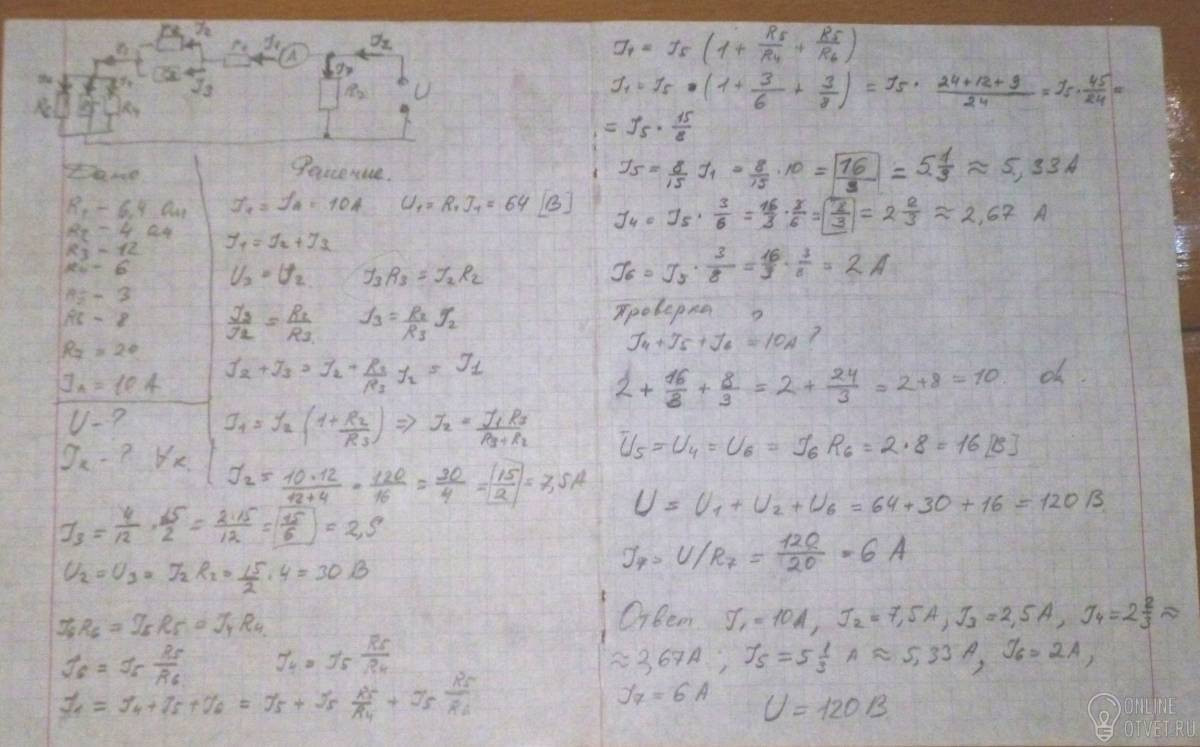 R2 I2
R1 I1 A I2
I3
I7
R7 U
R6 R5 R4
Дано
R1 - 6,4 Ом
R2 - 4 Ом
R3 - 12
R4 - 6
R5 - 3
R6 - 8
R7 = 20
Ia = 10 А
U - ?
Iк - ? ∀к.
Решение.
I1 = Ia = 10А U1 = R1 I1 = 64 [В]
I1 = I2 + I3
U3 = U2. I3R3 = I2R2
I3/I2 = R2/R3. I3 = R2/R3 I2
I2 + I3 = I2 + R2/R3 I2 = I1
I1 = I2 (1 + R2/R3) => I2 = I1 R3/(R3 + R2)
I2 = 10*12/(12+4) = 120/16 = 30/4 = 15/2 = 7,5А
I3 = 4/12 * 15/2 = 2*15/12 = 15/6 = 2,5
U2 = U3 = I2 R2 = 15/2 * 4 = 30 В
I6R6 = I5R5 = I4R4.
I6 = I5 R5/R6 I4 = I5 R5/R4
I1 = I4 + I5 + I6 = I5 + I5 R5/R4 + I5 R5/R6
I1 = I5 (1 + R5/R4 + R5/R6)
I1 = I5 * (1 + 3/6 + 3/8) = I5 * (24+12+9)/24 = I5 * 45/24 =
= I5 * 15/8
I5 = 8/15 I1 = 8/15 * 10 = 16/3 = 5 1/3 ≈ 5,33А
I4 = I5 * 3/6 = 16/3 * 3/6 = 8/3 = 2 2/3 ≈ 2,67 А
I6 = I5 * 3/8 = 16/3 * 3/8 = 2А
Проверка
I4 + I5 + I6 = 10А ?
2 + 16/3 + 8/3 = 2 + 24/3 = 2+8 = 10. ok.
U5 = U4 = U6 = I6 R6 = 2*8 = 16 [В]
U = U1 + U2 + U6 = 64+30+16 = 120 В
I7 = U/R7 = 120/20 = 6 А
Ответ I1 = 10А, I2 = 7,5А, I3 = 2,5А, I4 = 2 2/3 ≈
≈ 2,67А ; I5 = 5 1/3 А ≈ 5,33А, I6 = 2А,
I7 = 6А U = 120В
ONLINE
OTVET.RU